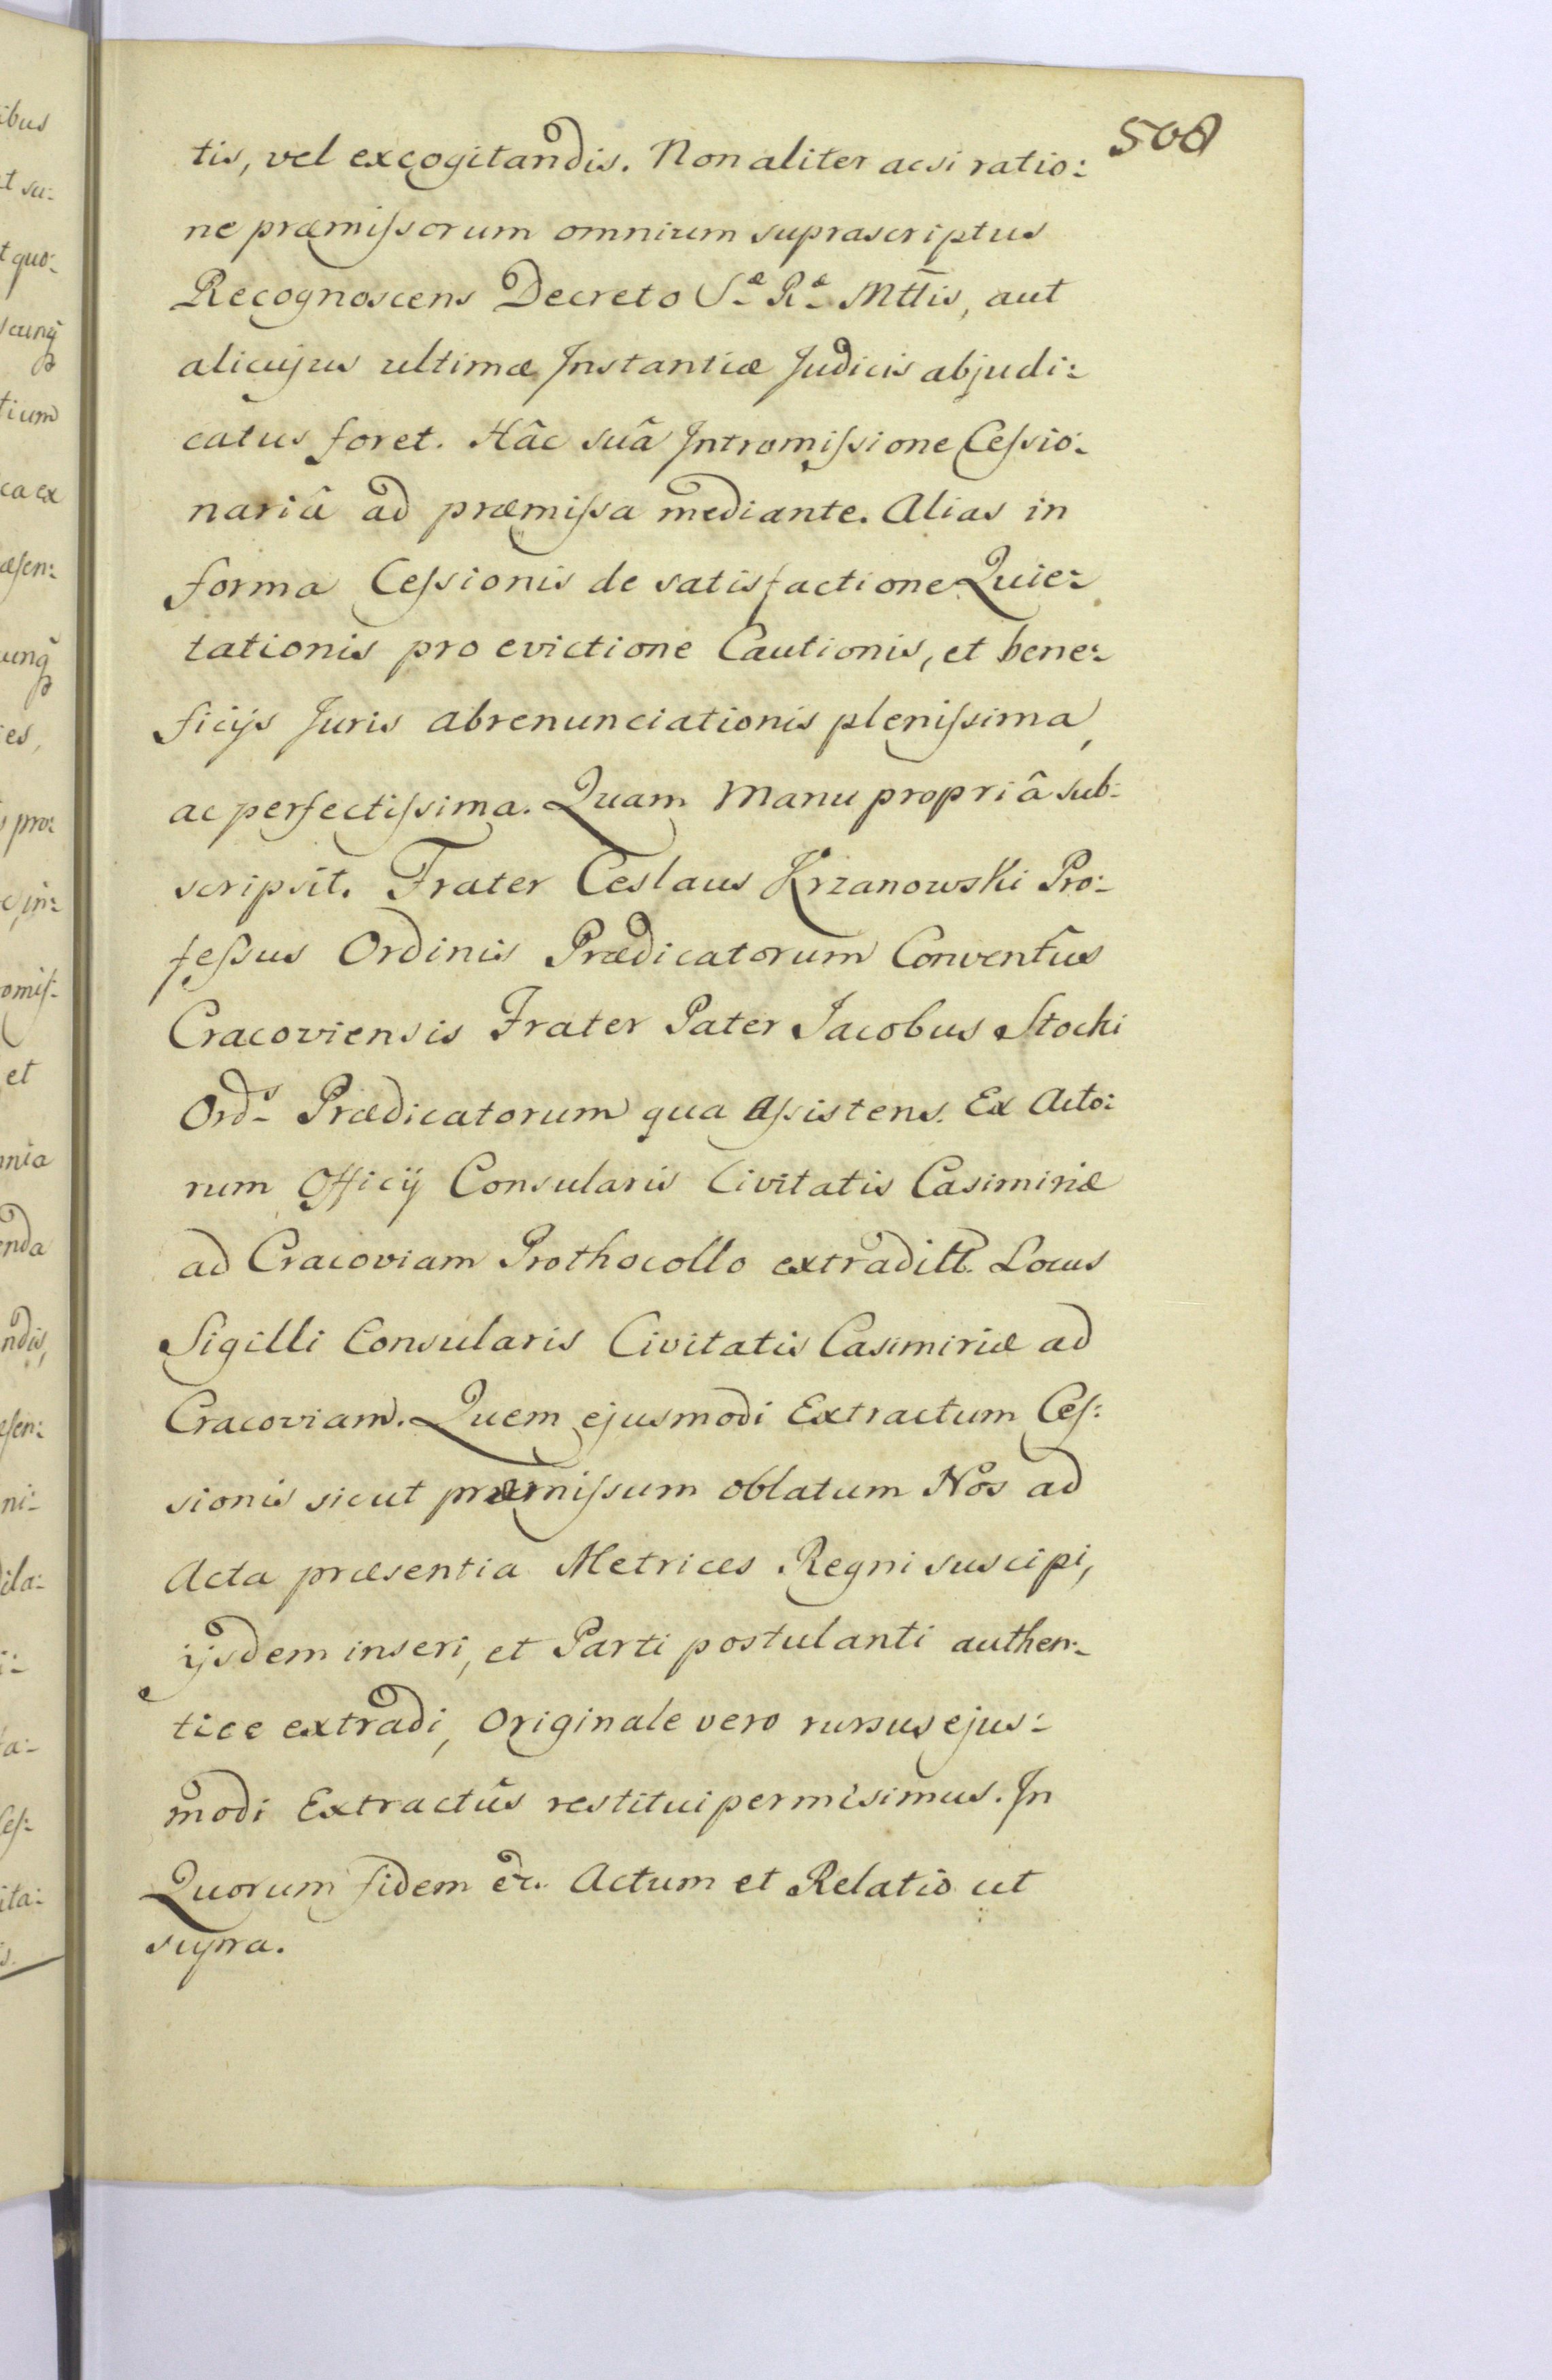 508
tis, vel excogitandis. Non aliter acsi ratio:
ne præmiſsorum omnium suprascriptus
Recognoscens Decreto Sæ Ræ Mttis, aut
alicujus ultimæ Instantiæ Judicis abjudi:
catus foret. Hâc suâ Intromiſsione Ceſsio:
nariâ ad præmiſsa mediante. Alias in
forma Ceſsionis de satisfactione Quie:
tationis pro evictione Cautionis, et bene:
ficijs Juris abrenunciationis pleniſsima,
ac perfectiſsima. Quam Manu propriâ sub:
scripsit. Frater Ceslaus Krzanowski Pro:
feſsus Ordinis Prædicatorum Conventûs
Cracoviensis Frater Pater Jacobus Stocki
Ords Prædicatorum qua Aſsistens. Ex Acto:
rum Officij Consularis Civitatis Casimiriæ
ad Cracoviam Prothocollo extraditt. Locus
Sigilli Consularis Civitatis Casimiriæ ad
Cracoviam. Quem ejusmodi Extractum Ceſ:
sionis sicut præmiſsum oblatum Nos ad
Acta præsentia Metrices Regni suscipi,
ijsdem inseri, et Parti postulanti authen:
tice extradi, Originale vero rursus ejus:
modi Extractûs restitui permisimus. In
Quorum fidem &c. Actum et Relatio ut
supra.
ibus
t su:
t quo:
tium
ca ex
æſen:
es,
pro:
in:
omiſ:
et
mnia
enda
ndis,
eſen:
ni:
ila:
a:
Ceſ:
ita: